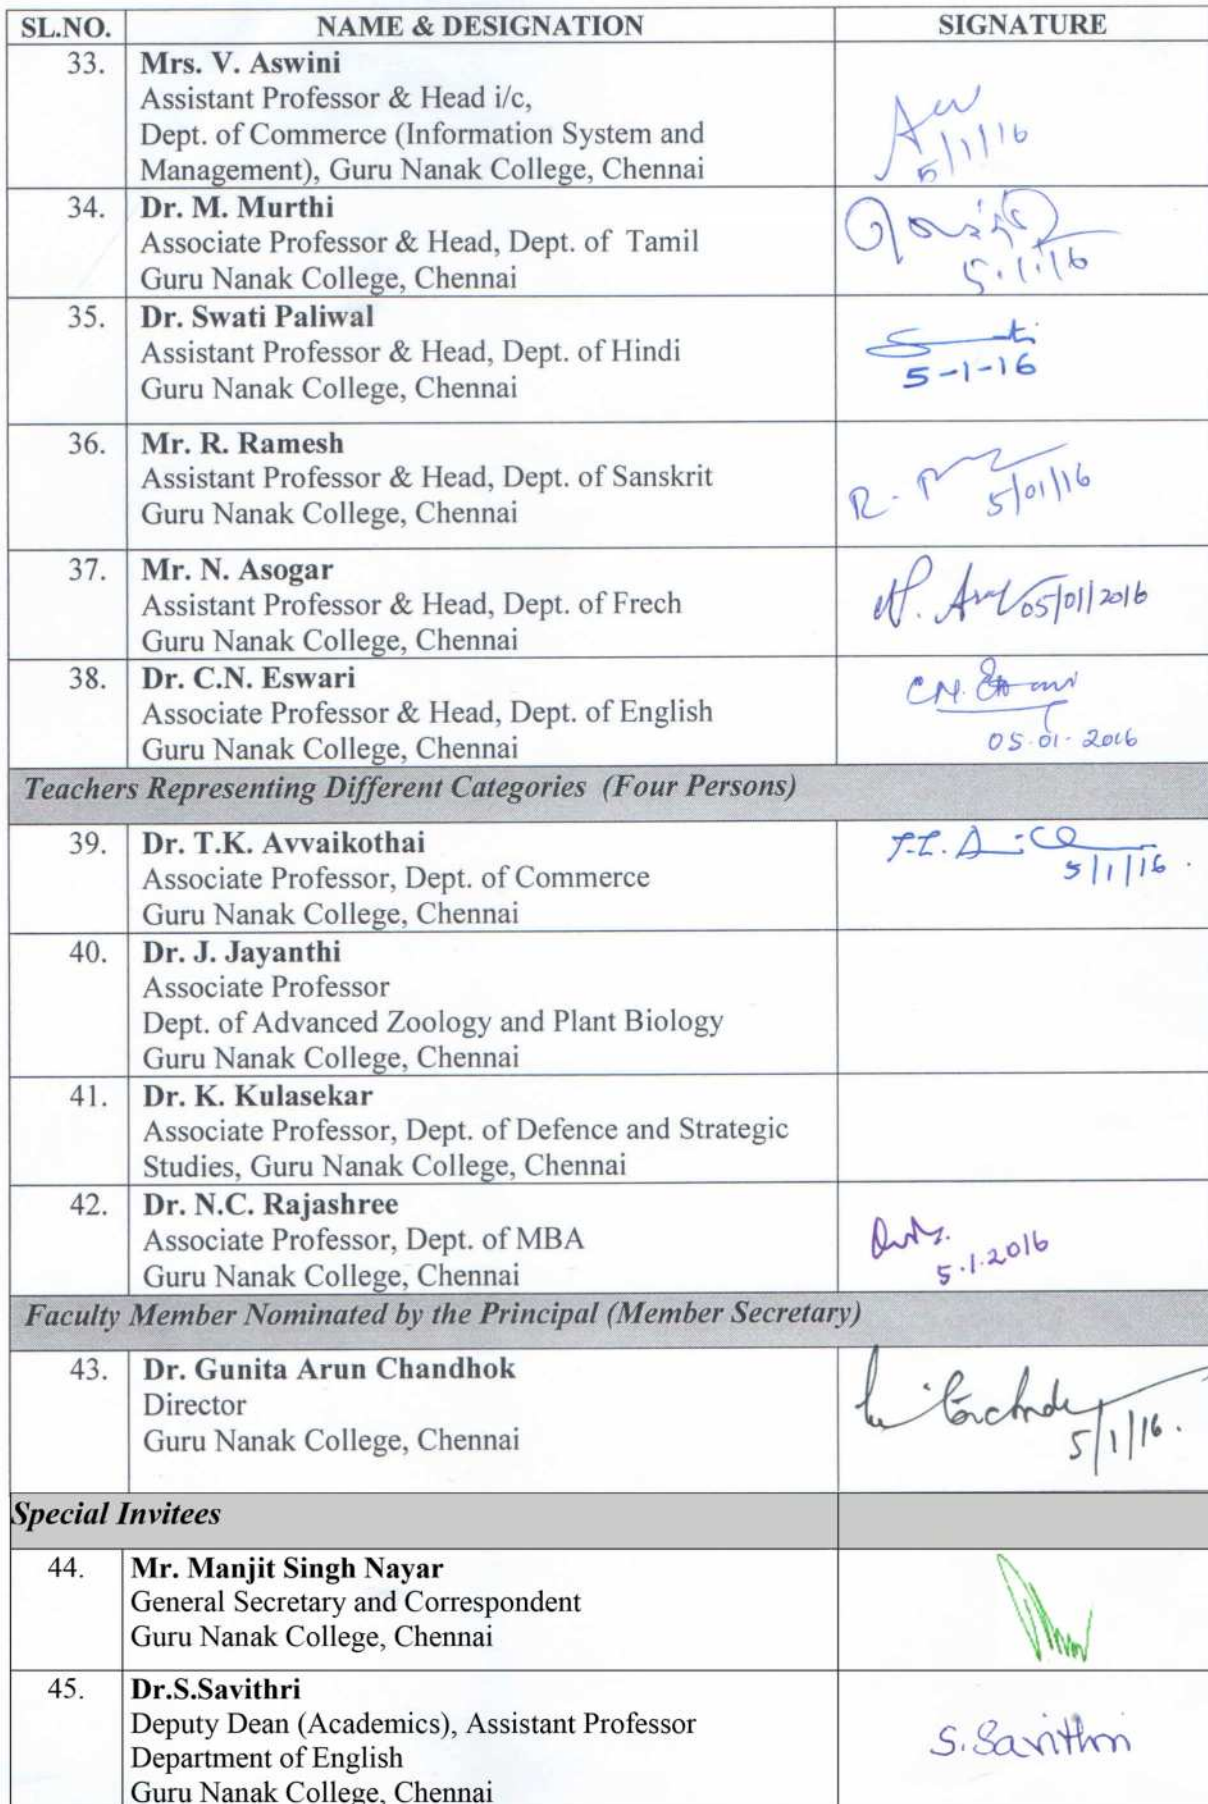 SL.NO. NAME & DESIGNATION SIGNATURE
33. Mrs. V. Aswini
Assistant Professor & Head i/c,
Dept. of Commerce (Information System and
Management), Guru Nanak College, Chennai
5/1/16
34. Dr. M. Murthi
Associate Professor & Head, Dept. of Tamil
Guru Nanak College, Chennai
5.1.16
35. Dr. Swati Paliwal
Assistant Professor & Head, Dept. of Hindi
Guru Nanak College, Chennai
5-1-16
36. Mr. R. Ramesh
Assistant Professor & Head, Dept. of Sanskrit
Guru Nanak College, Chennai
R. 5/01/16
37. Mr. N. Asogar
Assistant Professor & Head, Dept. of Frech
Guru Nanak College, Chennai
N. 05/01/2016
38. Dr. C.N. Eswari
Associate Professor & Head, Dept. of English
Guru Nanak College, Chennai
C.N. Eswari
05.01.2016
Teachers Representing Different Categories (Four Persons)
39. Dr. T.K. Avvaikothai
Associate Professor, Dept. of Commerce
Guru Nanak College, Chennai
5/1/16.
40. Dr. J. Jayanthi
Associate Professor
Dept. of Advanced Zoology and Plant Biology
Guru Nanak College, Chennai
41. Dr. K. Kulasekar
Associate Professor, Dept. of Defence and Strategic
Studies, Guru Nanak College, Chennai
42. Dr. N.C. Rajashree
Associate Professor, Dept. of MBA
Guru Nanak College, Chennai
5.1.2016
Faculty Member Nominated by the Principal (Member Secretary)
43. Dr. Gunita Arun Chandhok
Director
Guru Nanak College, Chennai
5/1/16.
Special Invitees
44. Mr. Manjit Singh Nayar
General Secretary and Correspondent
Guru Nanak College, Chennai
45. Dr.S.Savithri
Deputy Dean (Academics), Assistant Professor
Department of English
Guru Nanak College, Chennai
S. Savithri